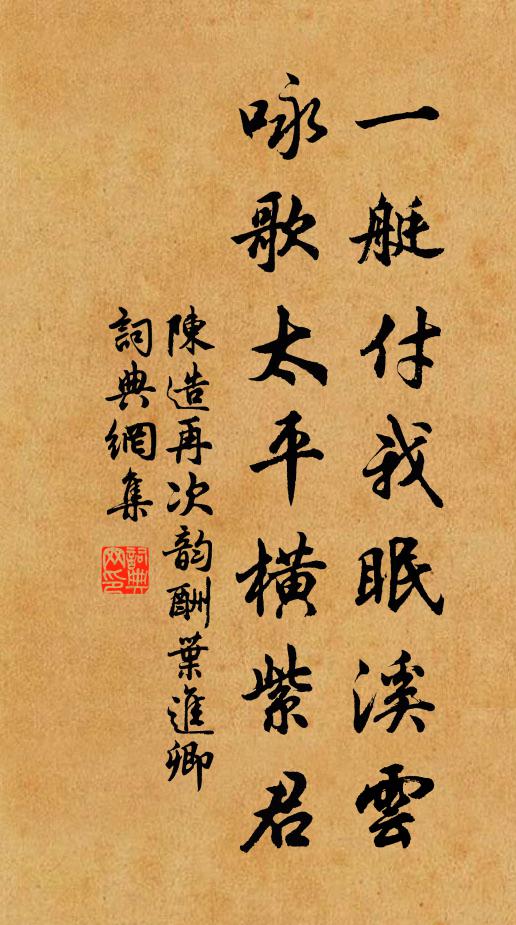 一艇付我眠溪雲
咏歌太平橫紫君
陳造再次韵酬葉進卿
詞典網集
詞典網印